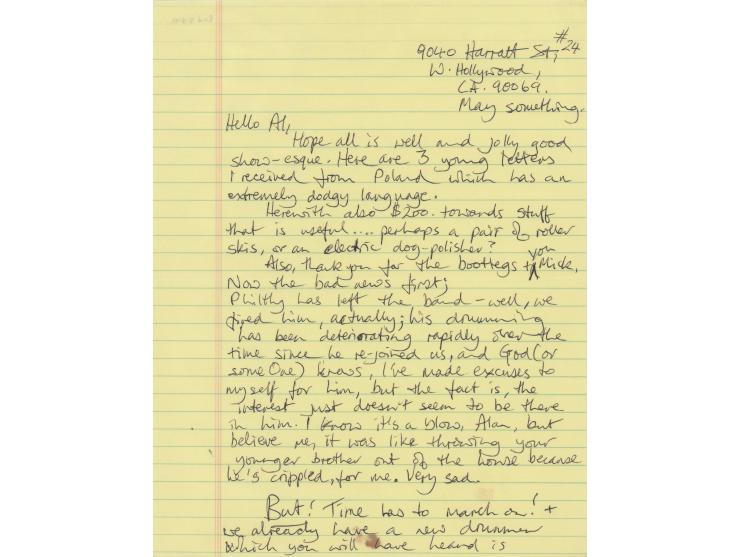 #24
9040 Harratt St,
W. Hollywood,
CA. 90069.
May something.
Hello Al,
Hope all is well and jolly good
show-esque. Here are 3 young letters
I received from Poland which has an
extremely dodgy language.
Herewith also $200. towards stuff
that is useful.... perhaps a pair of roller
skis, or an electric dog-polisher?
Also, thank you for the bootlegs + you Mick.
Now the bad news first;
Philthy has left the band - well, we
fired him, actually; his drumming
has been deteriorating rapidly over the
time since he re-joined us, and God (or
some One) knows, I've made excuses to
myself for him, but the fact is, the
interest just doesn't seem to be there
in him. I know it's a blow, Alan, but
believe me, it was like throwing your
younger brother out of the house because
he's crippled, for me. Very sad.
But! Time has to march on! +
we already have a new drummer
which you will have heard is